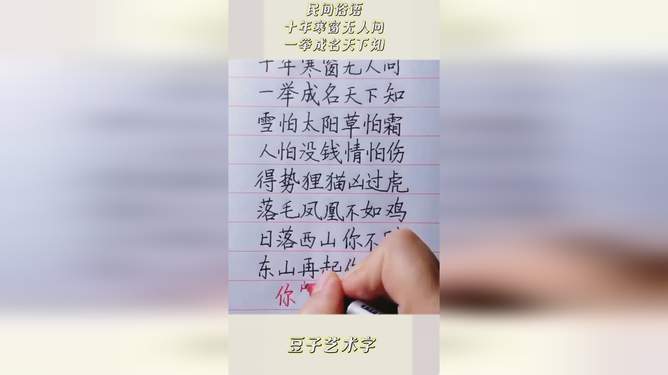 民间俗语
十年寒窗无人问
一举成名天下知
十年寒窗无人问
一举成名天下知
雪怕太阳草怕霜
人怕没钱情怕伤
得势狸猫凶过虎
落毛凤凰不如鸡
日落西山你不
东山再起你
你
豆子艺术字